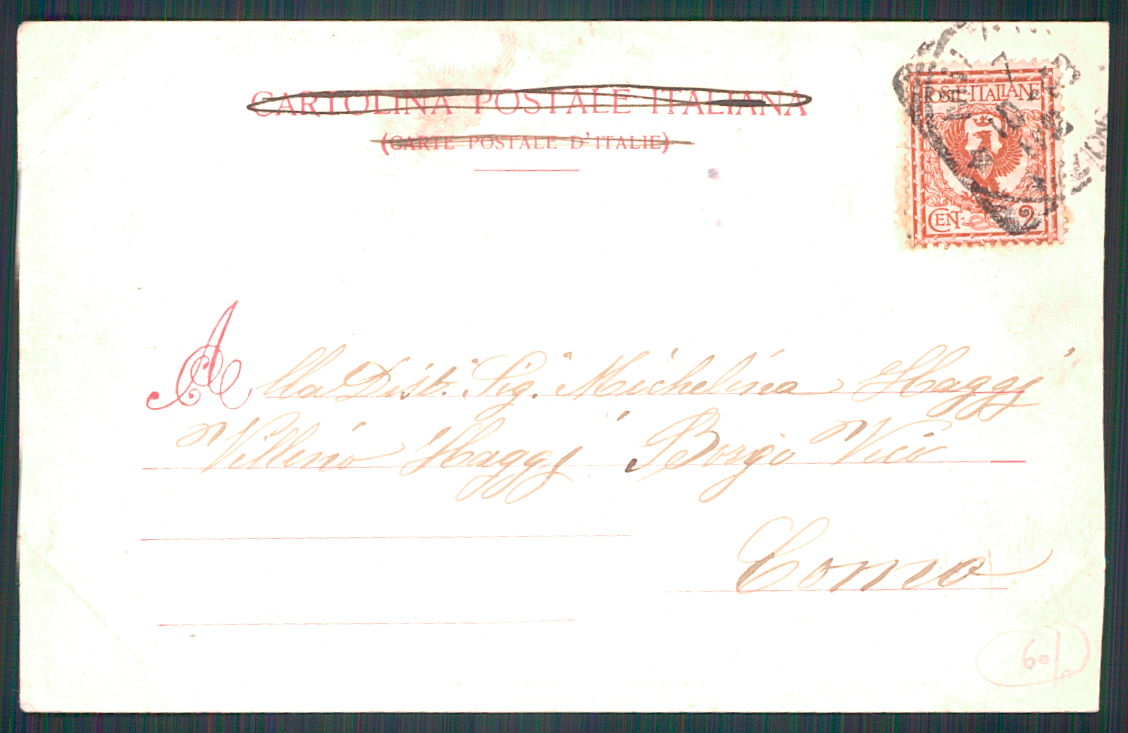 CARTOLINA POSTALE ITALIANA
(CARTE POSTALE D'ITALIE)
POSTE ITALIANE
CEN. 2
Alla Dist. Sig. Michelina Haggj
Villino Haggj Borgo Vico
Como